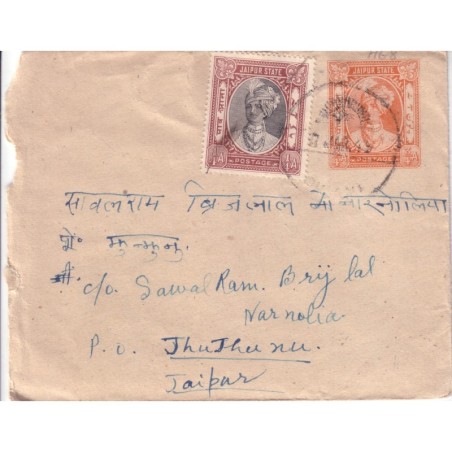 1168
JAIPUR STATE
JAIPUR STATE
POSTAGE
POSTAGE
सावलराम ब्रिजलाल
पो. झुन्झुनु.
c/o. Sawal Ram. Brij lal
Narnolia.
P. o. Jhuthunu.
Jaipur